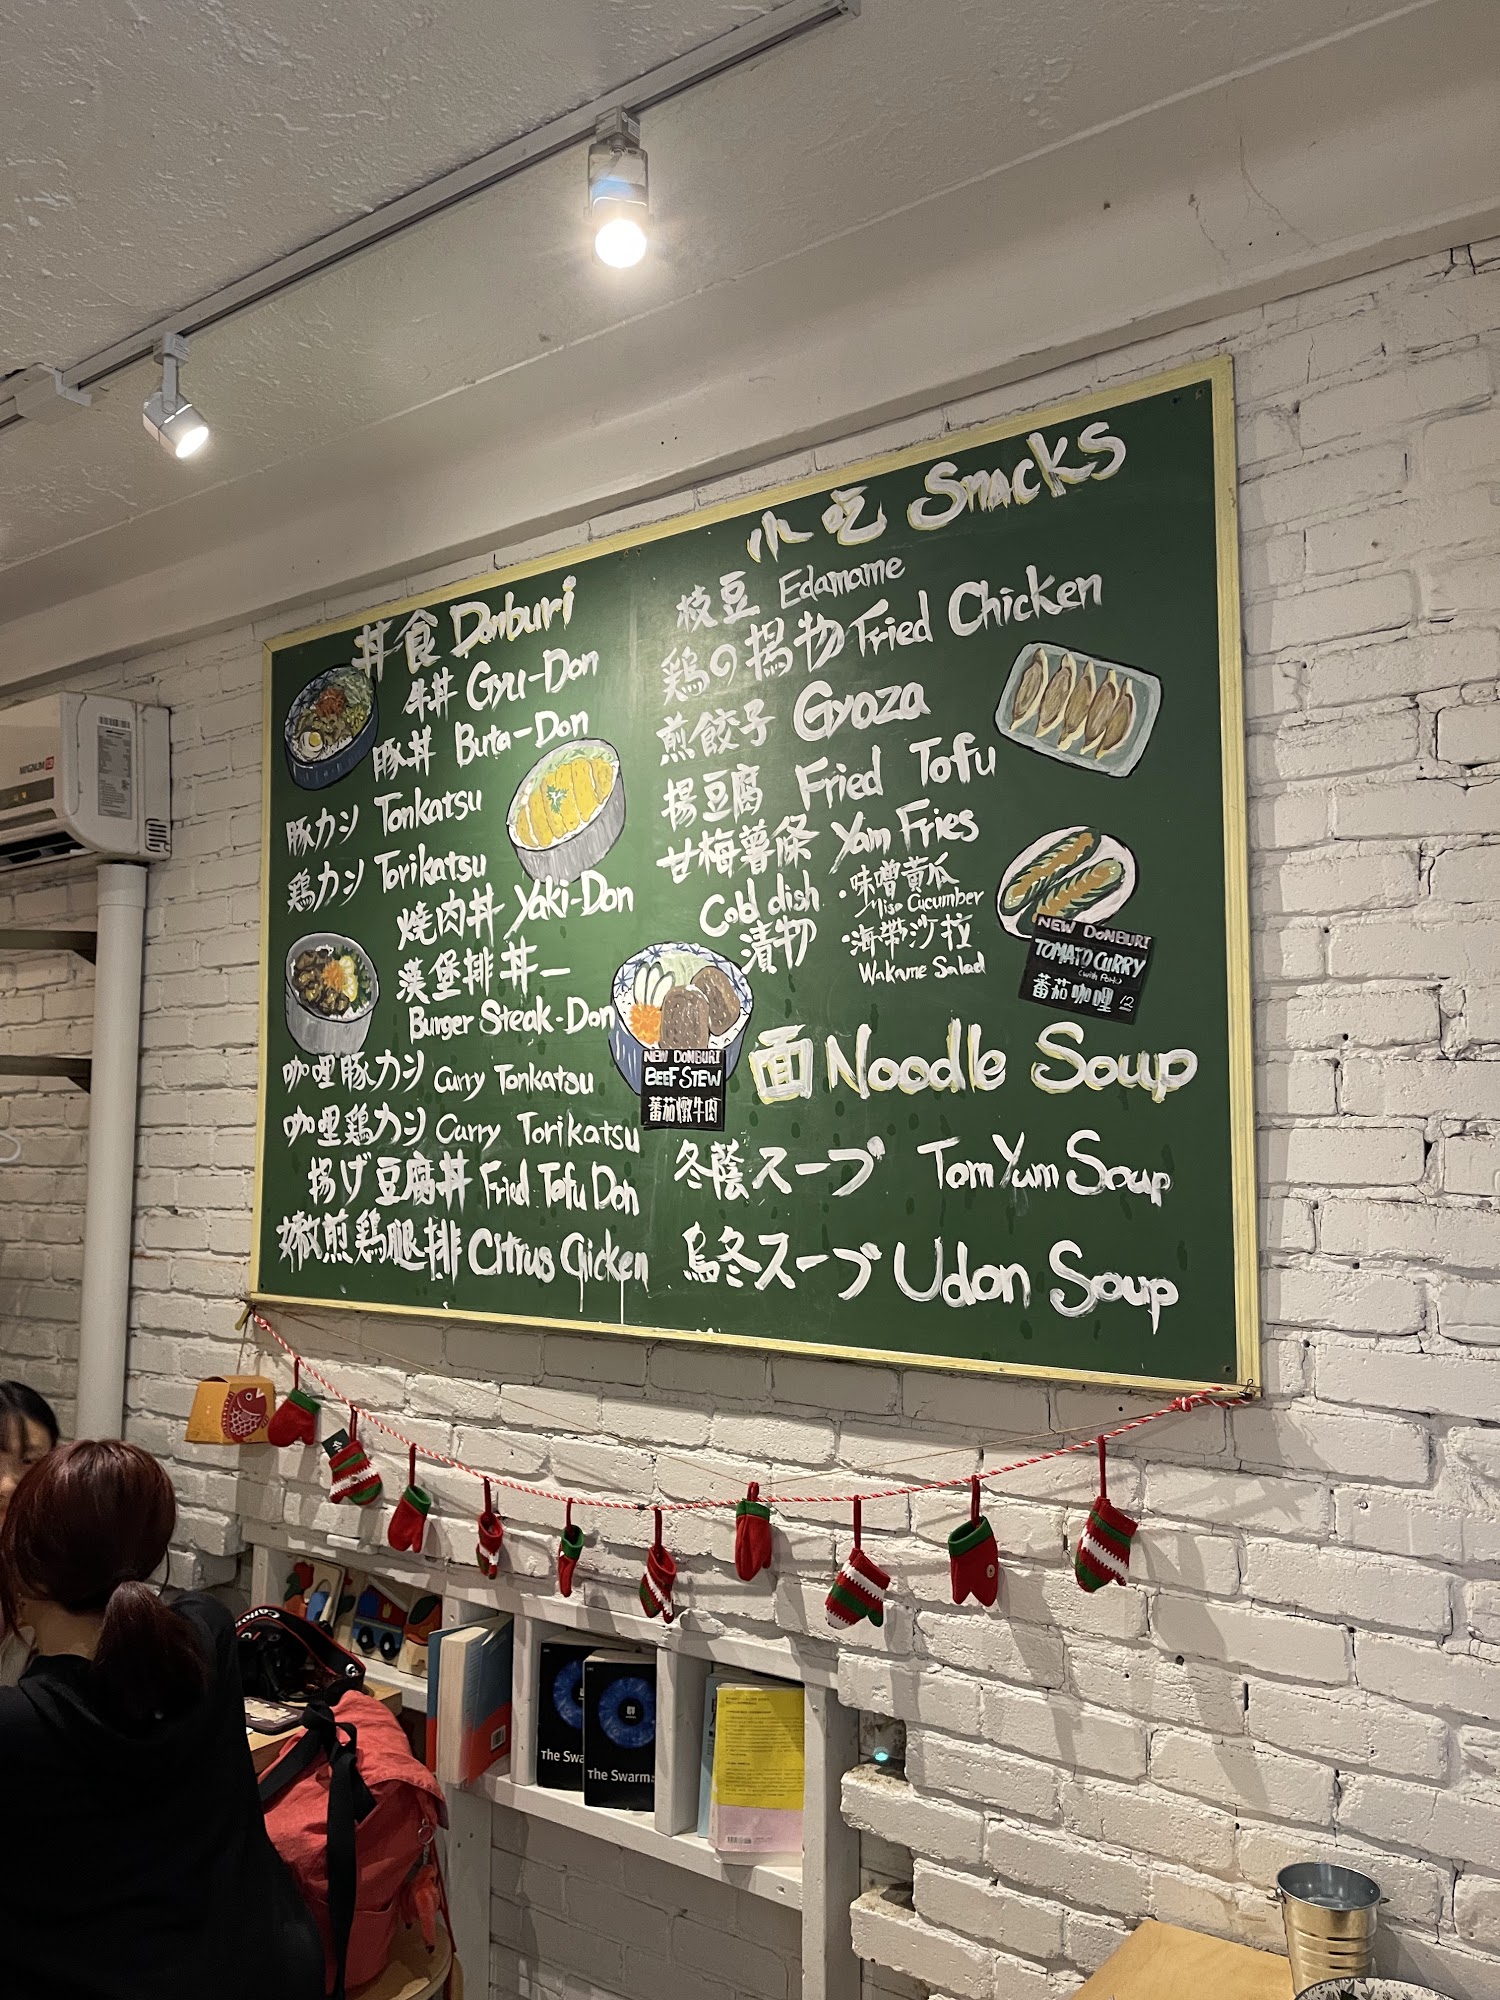 丼食 Donburi
牛丼 Gyu-Don
豚丼 Buta-Don
豚カシ Tonkatsu
鶏カシ Torikatsu
燒肉丼 Yaki-Don
漢堡排丼
Burger Steak-Don
咖哩豚カシ Curry Tonkatsu
咖哩鶏カシ Curry Torikatsu
揚げ豆腐丼 Fried Tofu Don
嫩煎鶏腿排 Citrus Chicken
NEW DONBURI
BEEF STEW
蕃茄燉牛肉
小吃 Snacks
枝豆 Edamame
鶏の揚物 Fried Chicken
煎餃子 Gyoza
揚豆腐 Fried Tofu
甘梅薯條 Yam Fries
Cold dish
漬物
・味噌黄瓜
Miso Cucumber
・海帶沙拉
Wakame Salad
NEW DONBURI
TOMATO CURRY
(with Pork)
蕃茄咖哩 12
面 Noodle Soup
冬蔭スープ Tom Yum Soup
烏冬スープ Udon Soup
MAGNUM
Canon
The Swa
The Swarm: